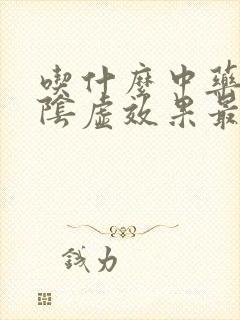 喫什麼中藥
陰虛效果最
錢力